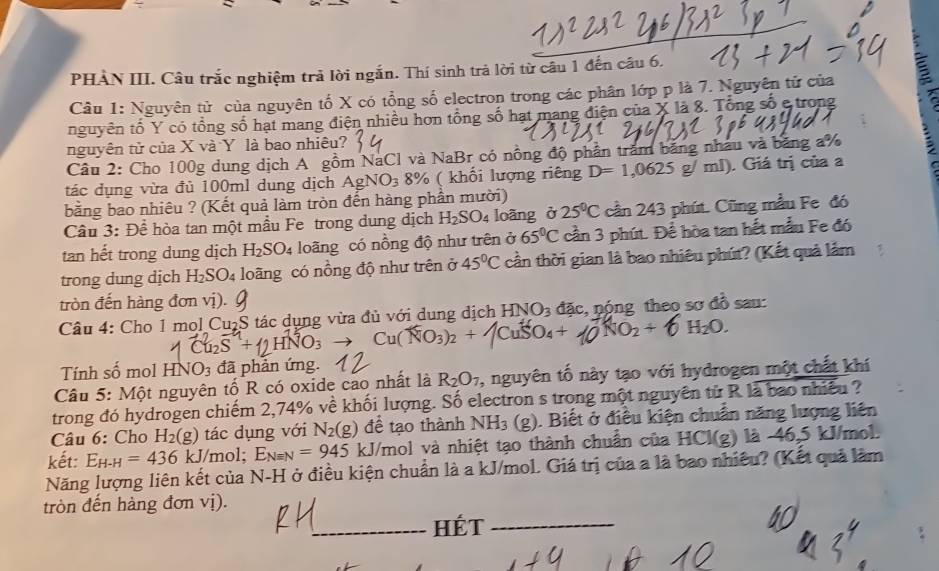 1s² 2s² 2p6/3s² 3p1
13 + 21 = 34
PHẦN III. Câu trắc nghiệm trả lời ngắn. Thí sinh trả lời từ câu 1 đến câu 6.
Câu 1: Nguyên tử của nguyên tố X có tổng số electron trong các phân lớp p là 7. Nguyên tử của
nguyên tố Y có tổng số hạt mang điện nhiều hơn tổng số hạt mang điện của X là 8. Tổng số e trong
nguyên tử của X và Y là bao nhiêu? 34
Câu 2: Cho 100g dung dịch A gồm NaCl và NaBr có nồng độ phần trăm bằng nhau và bằng a%
tác dụng vừa đủ 100ml dung dịch AgNO₃ 8% ( khối lượng riêng D= 1,0625 g/ ml). Giá trị của a
bằng bao nhiêu ? (Kết quả làm tròn đến hàng phần mười)
Câu 3: Để hòa tan một mẩu Fe trong dung dịch H₂SO₄ loãng ở 25⁰C cần 243 phút. Cũng mẩu Fe đó
tan hết trong dung dịch H₂SO₄ loãng có nồng độ như trên ở 65⁰C cần 3 phút. Để hòa tan hết mẩu Fe đó
trong dung dịch H₂SO₄ loãng có nồng độ như trên ở 45⁰C cần thời gian là bao nhiêu phút? (Kết quả làm
tròn đến hàng đơn vị). 9
Câu 4: Cho 1 mol Cu₂S tác dụng vừa đủ với dung dịch HNO₃ đặc, nóng theo sơ đồ sau:
1 Cu₂S + 12 HNO₃ → Cu(NO₃)₂ + 1 CuSO₄ + 10 NO₂ + 6 H₂O.
Tính số mol HNO₃ đã phản ứng. 12
Câu 5: Một nguyên tố R có oxide cao nhất là R₂O₇, nguyên tố này tạo với hydrogen một chất khí
trong đó hydrogen chiếm 2,74% về khối lượng. Số electron s trong một nguyên tử R là bao nhiêu ?
Câu 6: Cho H₂(g) tác dụng với N₂(g) để tạo thành NH₃ (g). Biết ở điều kiện chuẩn năng lượng liên
kết: E_H-H = 436 kJ/mol; E_N≡N = 945 kJ/mol và nhiệt tạo thành chuẩn của HCl(g) là -46,5 kJ/mol.
Năng lượng liên kết của N-H ở điều kiện chuẩn là a kJ/mol. Giá trị của a là bao nhiêu? (Kết quả làm
tròn đến hàng đơn vị).
RH
HẾT